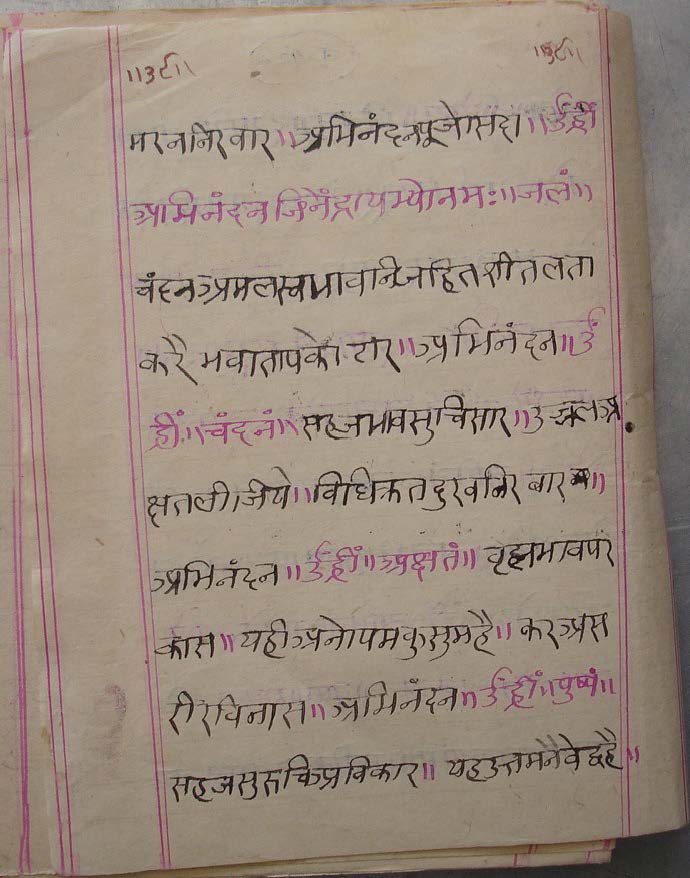 ॥३८॥ ॥३८॥
मरननिरवार॥अभिनंदनपूजोसदा॥उंह्रीं
अभिनंदनजिनेंद्रायभ्योनमः॥जलं॥
चंदनअमलस्वभावानिजहितशीतलता
करैभवातापकोटार॥अभिनंदन॥उं
ह्रीं॥चंदनं॥सहजभावसुचिसार॥उज्जलअ
क्षतलीजिये॥विधिक्रतदुखनिरबार॥
अभिनंदन॥उंह्रीं॥अक्षतं॥वृह्मभावपर
कास॥यहीअनोपमकुसुमहै॥करअस
रीरविनास॥अभिनंदन॥उंह्रीं॥पुष्पं॥
सहजसुरुचिअविकार॥यहउत्तमनैवेद्यहै॥